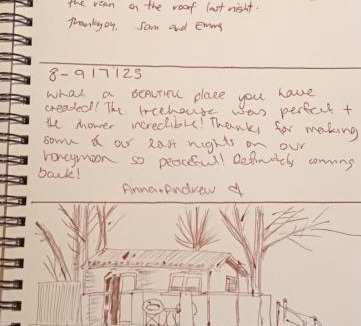 the rain on the roof last night.
Thankyou, Sam and Emma
8-9/7/25
What a BEAUTIFUL place you have
created! The treehouse was perfect +
the shower incredible! Thanks for making
some of our last nights on our
honeymoon so peaceful! Definitely coming
back!
Anna+Andrew